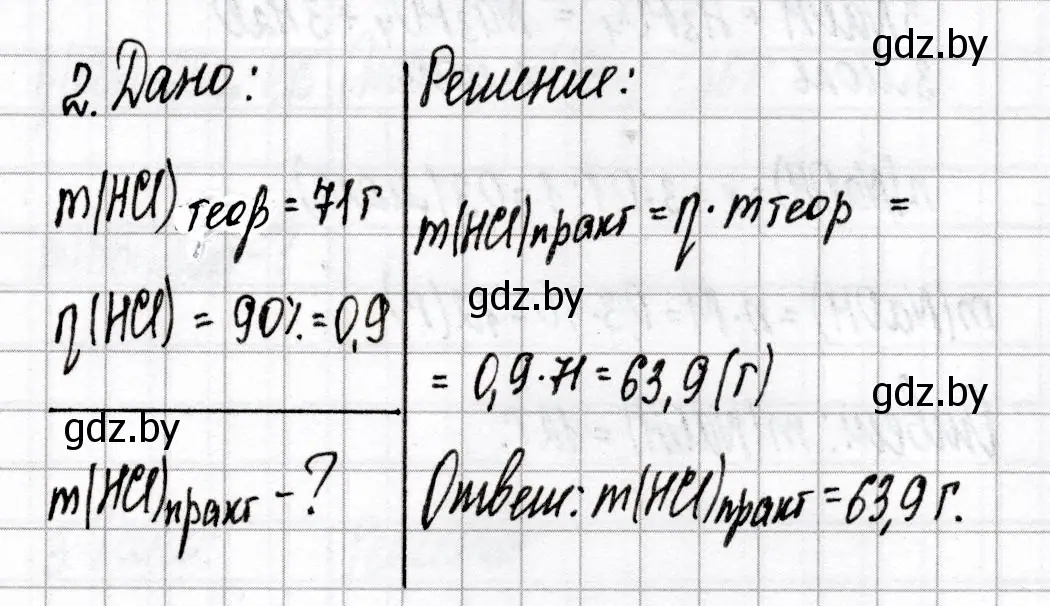 gdz.by
2. Дано:
m(HCl) теор = 71 г
η(HCl) = 90% = 0,9
gdz.by
m(HCl)практ - ?
Решение:
m(HCl)практ = η · mтеор =
gdz.by
= 0,9 · 71 = 63,9 (г)
gdz.by
Ответ: m(HCl)практ = 63,9 г.